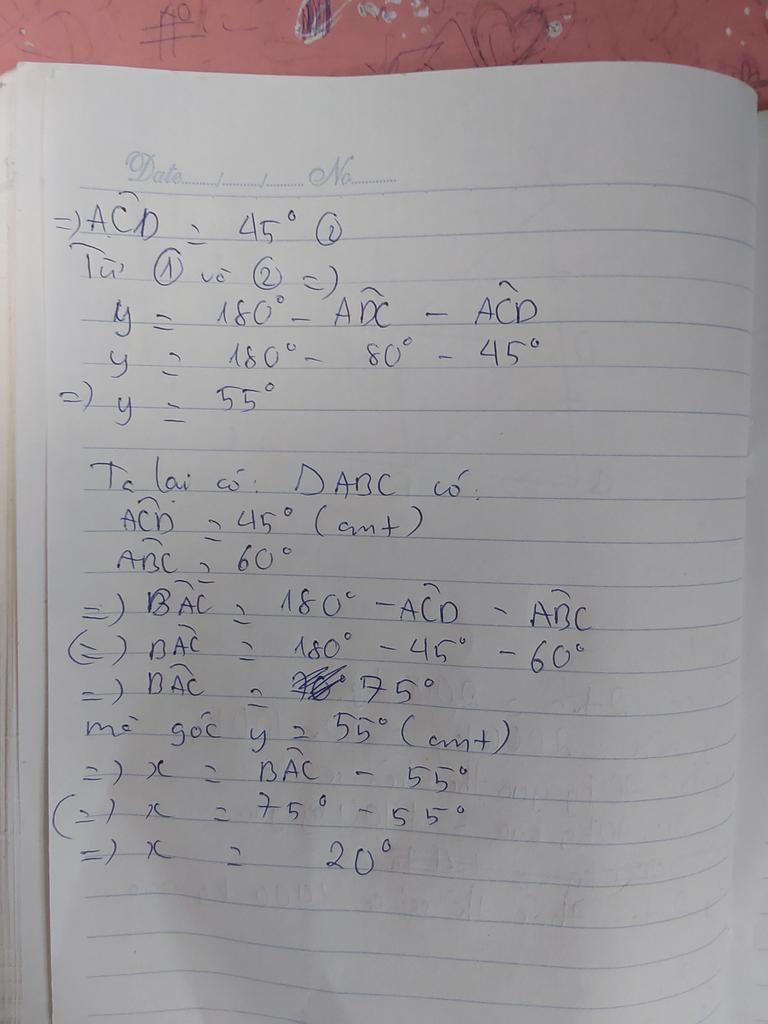 Date......./......./....... No...........
=) AĈD = 45° ②
Từ ① và ② =)
y = 180° - AD̂C - AĈD
y = 180° - 80° - 45°
=) y = 55°
Ta lại có: ΔABC có:
AĈD = 45° (cmt)
AB̂C = 60°
=) BÂC = 180° - AĈD - AB̂C
(=) BÂC = 180° - 45° - 60°
=) BÂC = 75°
mà góc y = 55° (cmt)
=) x = BÂC - 55°
(=) x = 75° - 55°
=) x = 20°